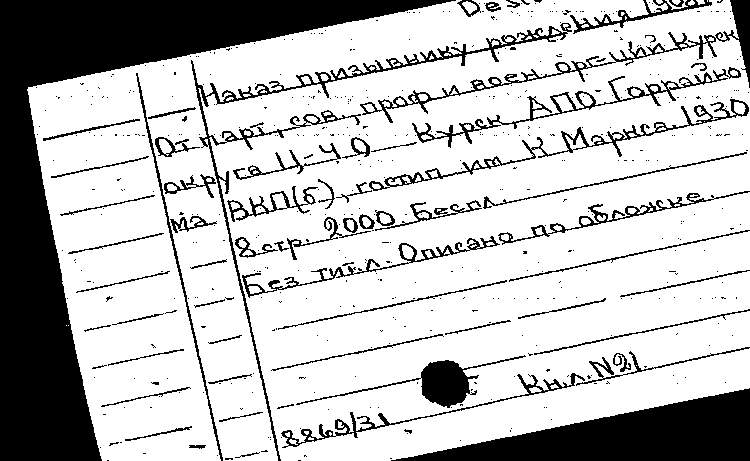 Наказ призывнику рождения 1908 г.
От парт., сов., проф и воен. орг-ций Курск
округа Ц-ЧО Курск, АПО Горрайко
ма ВКП(б), гостип им. К Маркса. 1930
8 стр. 2000. Беспл.
Без тит. л. Описано по обложке.
Кн. л. N21
8869/31